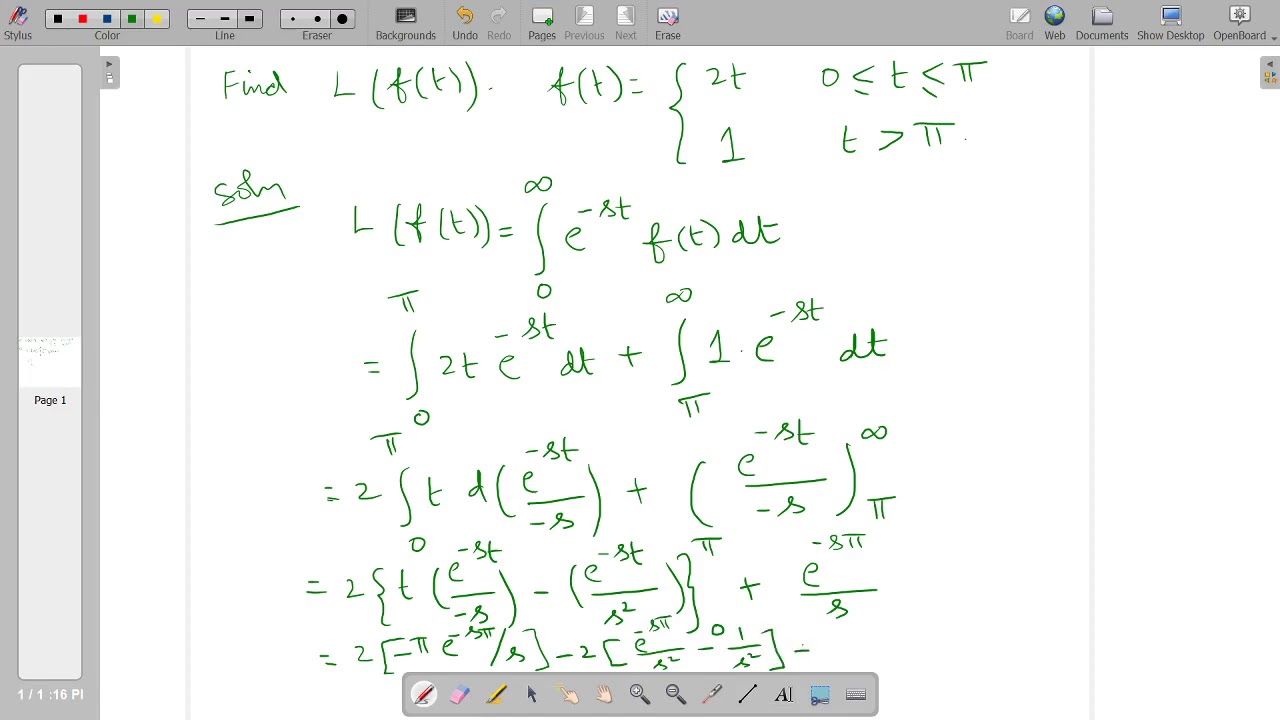 Stylus Color Line Eraser Backgrounds Undo Redo Pages Previous Next Erase Board Web Documents Show Desktop OpenBoard
Find L(f(t)). f(t) = { 2t 0 ≤ t ≤ π
1 t > π.
Soln
L(f(t)) = ∫_0^∞ e^{-st} f(t) dt
= ∫_0^π 2t e^{-st} dt + ∫_π^∞ 1. e^{-st} dt
Page 1
= 2 ∫_0^π t d(e^{-st}/-s) + (e^{-st}/-s)_π^∞
= 2 { t (e^{-st}/-s) - (e^{-st}/s²) }_0^π + e^{-sπ}/s
= 2 [-π e^{-sπ}/s] - 2 [e^{-sπ}/s² - 1/s²] -
1 / 1 :16 PI
AI